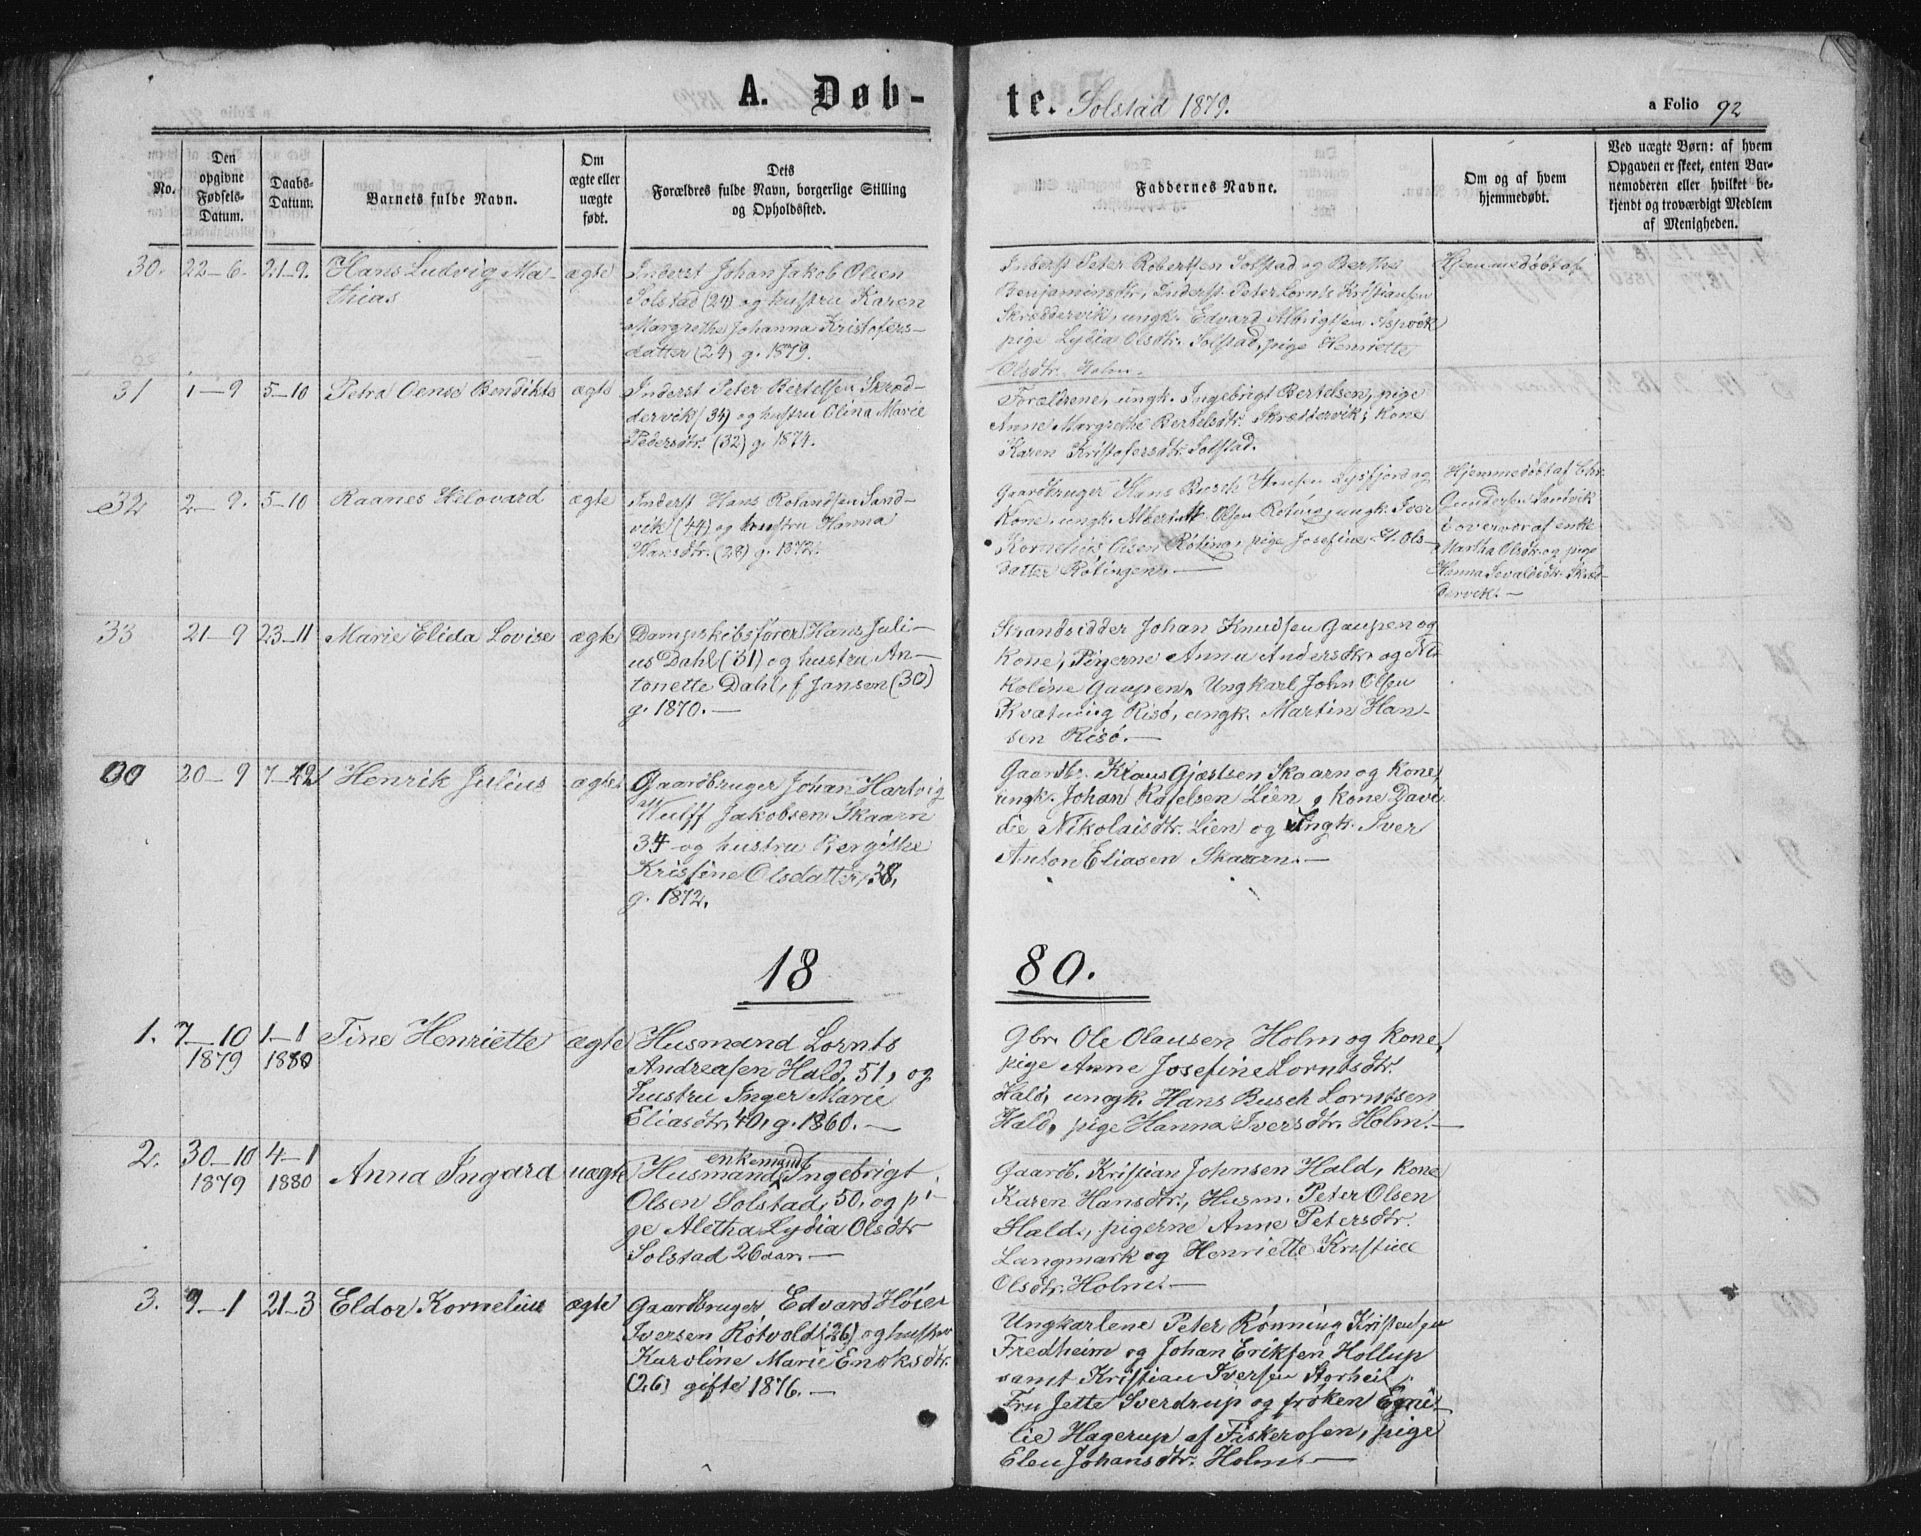 A. Døb-
te. Solstad 1879.
a Folio 92
No.
Den
opgivne
Fødsels-
Datum.
Daabs-
Datum.
Barnets fulde Navn.
Om
ægte eller
uægte
født.
Dets
Forældres fulde Navn, borgerlige Stilling
og Opholdssted.
Faddernes Navne.
Om og af hvem
hjemmedøbt.
Ved uægte Børn: af hvem
Opgaven er skeet, enten Bar-
nemoderen eller hvilket be-
kjendt og troværdigt Medlem
af Menigheden.
30. 22–6. 21–9. Hans Ludvig Ma-
thias
ægte
Inderst Johan Jakob Olsen
Solstad (24) og hustru Karen
Margrethe Johanna Kristofers-
datter (24) g. 1879.
Inderst Peter Robertsen Solstad og Berthe
Benjaminsdtr, Inderst Peter Lornts Kristiansen
Skræddervik, ungk. Edvard Albrigtsen Aspvik
pige Lydia Olsdtr. Solstad, pige Henriette
Olsdtr. Holm.
Hjemmedøbt af
31 1–9 5–10 Petra Oense Bendikte ægte
Inderst Peter Bertelsen Skræd-
dervik (34) og hustru Olina Marie
Pedersdtr. (32) g. 1874.
Forældrene, ungk. Ingebrigt Bertelsen, pige
Anne Margrethe Bertelsdtr. Skræddervik, Kone
Karen Kristofersdtr. Solstad.
32 2–9. 5–10 Raanes Hilovard ægte
Inderst Hans Rolandsen Sand-
vik (44) og hustru Hanna
Hansdtr. (28) g. 1872.
Gaardbruger Hans Busch Hansen Lysfjord og
Kone, ungk. Albert Olsen Røting, ungk. Iver
Kornelius Olsen Røting, pige Josefine Ols-
datter Røtingen. —
Hjemmedøbt af Chr.
Gunders. Sandvik
i overvær af enke
Martha Olsdtr. og pige
Hanna Sevaldsdtr. Skræd-
dervik. —
33 21–9 23–11 Marie Elida Lovise ægte
Dampskibsfører Hans Juli-
us Dahl (31) og hustru An-
tonette Dahl, f Jansen (30)
g. 1870. —
Strandsidder Johan Knudsen Gaupen og
Kone, Pigerne Anna Andersdtr. og Ni-
koline Gaupen, Ungkarl John Olsen
Kvatning Risø, ungk. Martin Han-
sen Risø. —
20–9 7–12 Henrik Julius ægte
Gaardbruger Johan Hartvig
Wulff Jakobsen Skaarn
34 og hustru Bergithe
Kristine Olsdatter, 38,
g. 1872.
Gaardbr. Klaus Gjæstsen Skaarn og Kone,
ungk. Johan Rafelsen Lien, Kone Davi-
die Nikolaisdtr. Lien og Ungk. Iver
Anton Eliasen Skaarn. —
18
80.
1. 7–10 1–1 Tine Henriette ægte
1879 1880
Husmand Lornts
Andreasen Hald, 51, og
hustru Inger Marie
Eliasdtr, 40, g. 1860. —
Gbr. Ole Olausen Holm og Kone,
pige Anne Josefine Lorntsdtr.
Hald, ungk. Hans Busch Lorntsen
Hald, pige Hanna Iversdtr. Holm. —
2. 30–10 4–1 Anna Ingard uægte
1879 1880
enkemand
Husmand Ingebrigt
Olsen Solstad, 50, og pi-
ge Aletha Lydia Olsdtr
Solstad 26 aar. —
Gaardb. Kristian Johnsen Hald, Kone
Karen Hansdtr., Husm. Peter Olsen
Hald, pigerne Anne Petersdtr.
Langmark og Henriette Kristine
Olsdtr. Holm. —
3. 9–1 21–3 Eldor Kornelius ægte
Gaardbruger Edvard Høier
Iversen Røtvold (26) og hustru
Karoline Marie Enoksdtr.
(26) gifte 1876. —
Ungkarlene Peter Rønning Kristensen
Fredheim og Johan Eriksen Hollup
samt Kristian Iversen Storheil,
Fru Jette Sverdrup og frøken Emi-
lie Hagerup af Fiskerosen, pige
Elen Johansdtr. Holm. —